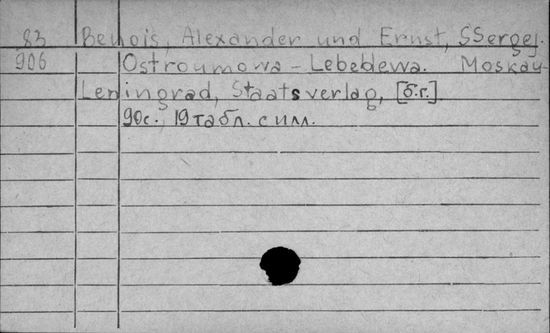 83 Benois, Alexander und Ernst, SSergej.
906 Ostroumowa - Lebedewa. Moskau-
Leningrad, Staatsverlag, [б.г.]
90с. 19 табл. с илл.